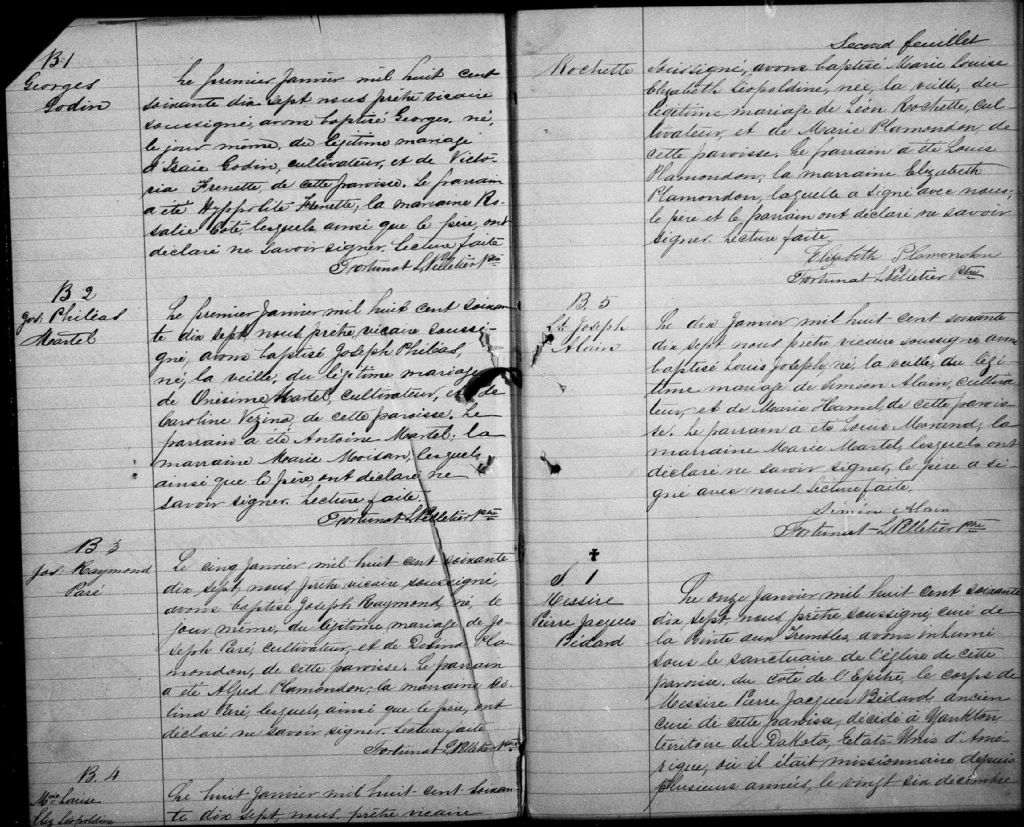 B 1
Georges
Godin
Le premier Janvier mil huit cent
soixante dix sept nous prêtre vicaire
soussigné, avons baptisé Georges, né,
le jour même, du légitime mariage
d'Isaie Godin, cultivateur, et de Victo-
ria Frenette, de cette paroisse. Le parrain
a été Hyppolite Frenette; la marraine Ro-
salie Coté, lesquels ainsi que le père, ont
déclaré ne savoir signer. Lecture faite
Fortunat L. Pelletier Ptre
B 2
Jos. Philéas
Martel
Le premier Janvier mil huit cent soixan-
te dix sept, nous prêtre, vicaire soussi-
gné, avons baptisé Joseph Philéas,
né, la veille, du légitime mariage
de Onésime Martel, cultivateur, et de
Caroline Vézina, de cette paroisse. Le
parrain a été Antoine Martel; la
marraine Marie Moisan, lesquels
ainsi que le père, ont déclaré ne
savoir signer. Lecture faite.
Fortunat L. Pelletier Ptre
B 3
Jos. Raymond
Paré
Le cinq Janvier mil huit cent soixante
dix sept, nous prêtre vicaire, soussigné,
avons baptisé Joseph Raymond, né, le
jour même, du légitime mariage de Jo-
seph Paré, cultivateur, et de Plа-
mondon, de cette paroisse. Le parrain
a été Alfred Plamondon; la marraine
Paré, lesquels, ainsi que le père, ont
déclaré ne savoir signer. Lecture faite
Fortunat L. Pelletier Ptre
B. 4
Mie Louise
Eliz Léopoldine
Le huit Janvier mil huit cent soixan-
te dix sept, nous prêtre vicaire
Second feuillet
Rochette
soussigné, avons baptisé Marie Louise
Elizabeth Léopoldine, née, la veille, du
légitime mariage de Léon Rochette, cul-
tivateur, et de Marie Plamondon, de
cette paroisse. Le parrain a été Louis
Plamondon; la marraine Elizabeth
Plamondon, laquelle a signé avec nous;
le père et le parrain ont déclaré ne savoir
signer. Lecture faite.
Elizabeth Plamondon
Fortunat L. Pelletier Ptre
B. 5
Ls Joseph
Alain
Le dix Janvier mil huit cent soixante
dix sept nous prêtre vicaire soussigné, avons
baptisé Louis Joseph, né, la veille, du légi-
time mariage de Simon Alain, cultiva-
teur, et de Marie Hamel, de cette parois-
se. Le parrain a été Louis; la
marraine Marie Martel, lesquels ont
déclaré ne savoir signer, le père a si-
gné avec nous. Lecture faite.
Simon Alain
Fortunat L. Pelletier Ptre
S 1
Messire
Pierre Jacques
Bédard
Le onze Janvier mil huit cent soixante
dix sept, nous prêtre soussigné, curé de
la Pointe aux Trembles, avons inhumé
sous le sanctuaire de l'église de cette
paroisse, du côté de l'Epitre, le corps de
Messire Pierre Jacques Bédard ancien
curé de cette paroisse, décédé à Yankton,
territoire du Dakota, Etats Unis d'Amé-
rique, où il était missionnaire depuis
plusieurs années, le vingt six décembre